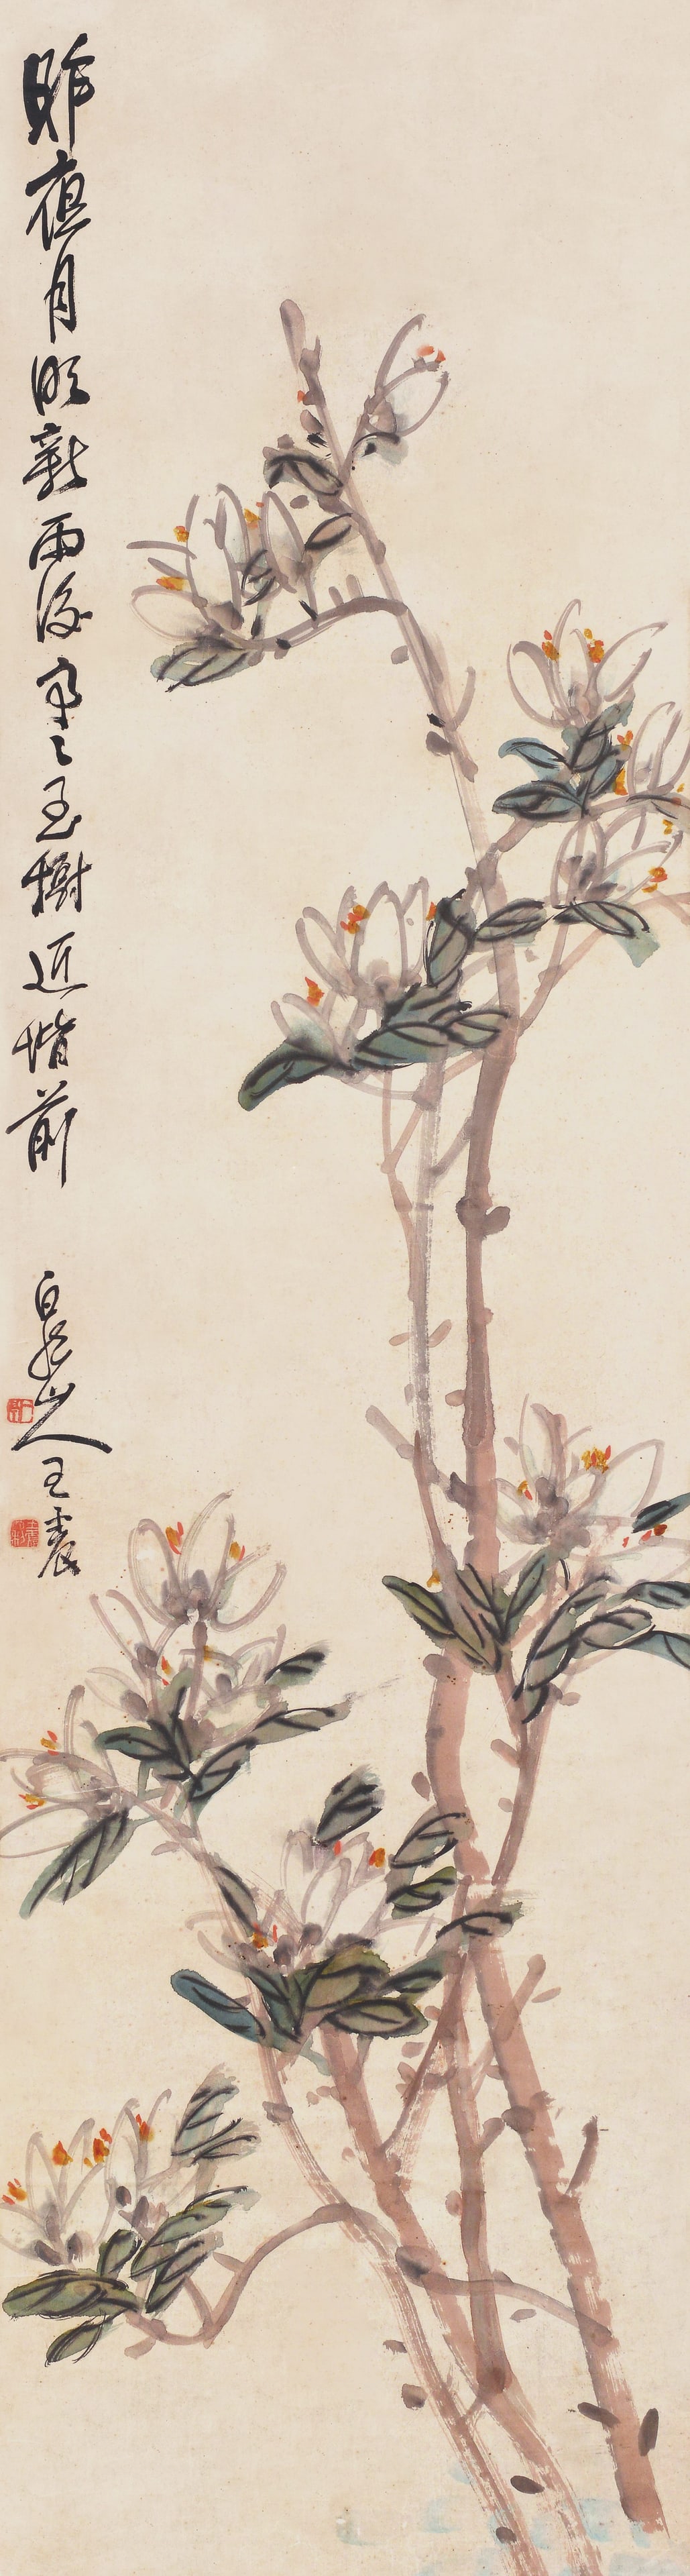 昨夜月明新雨後亭〻玉樹近階前
白龍山人王震